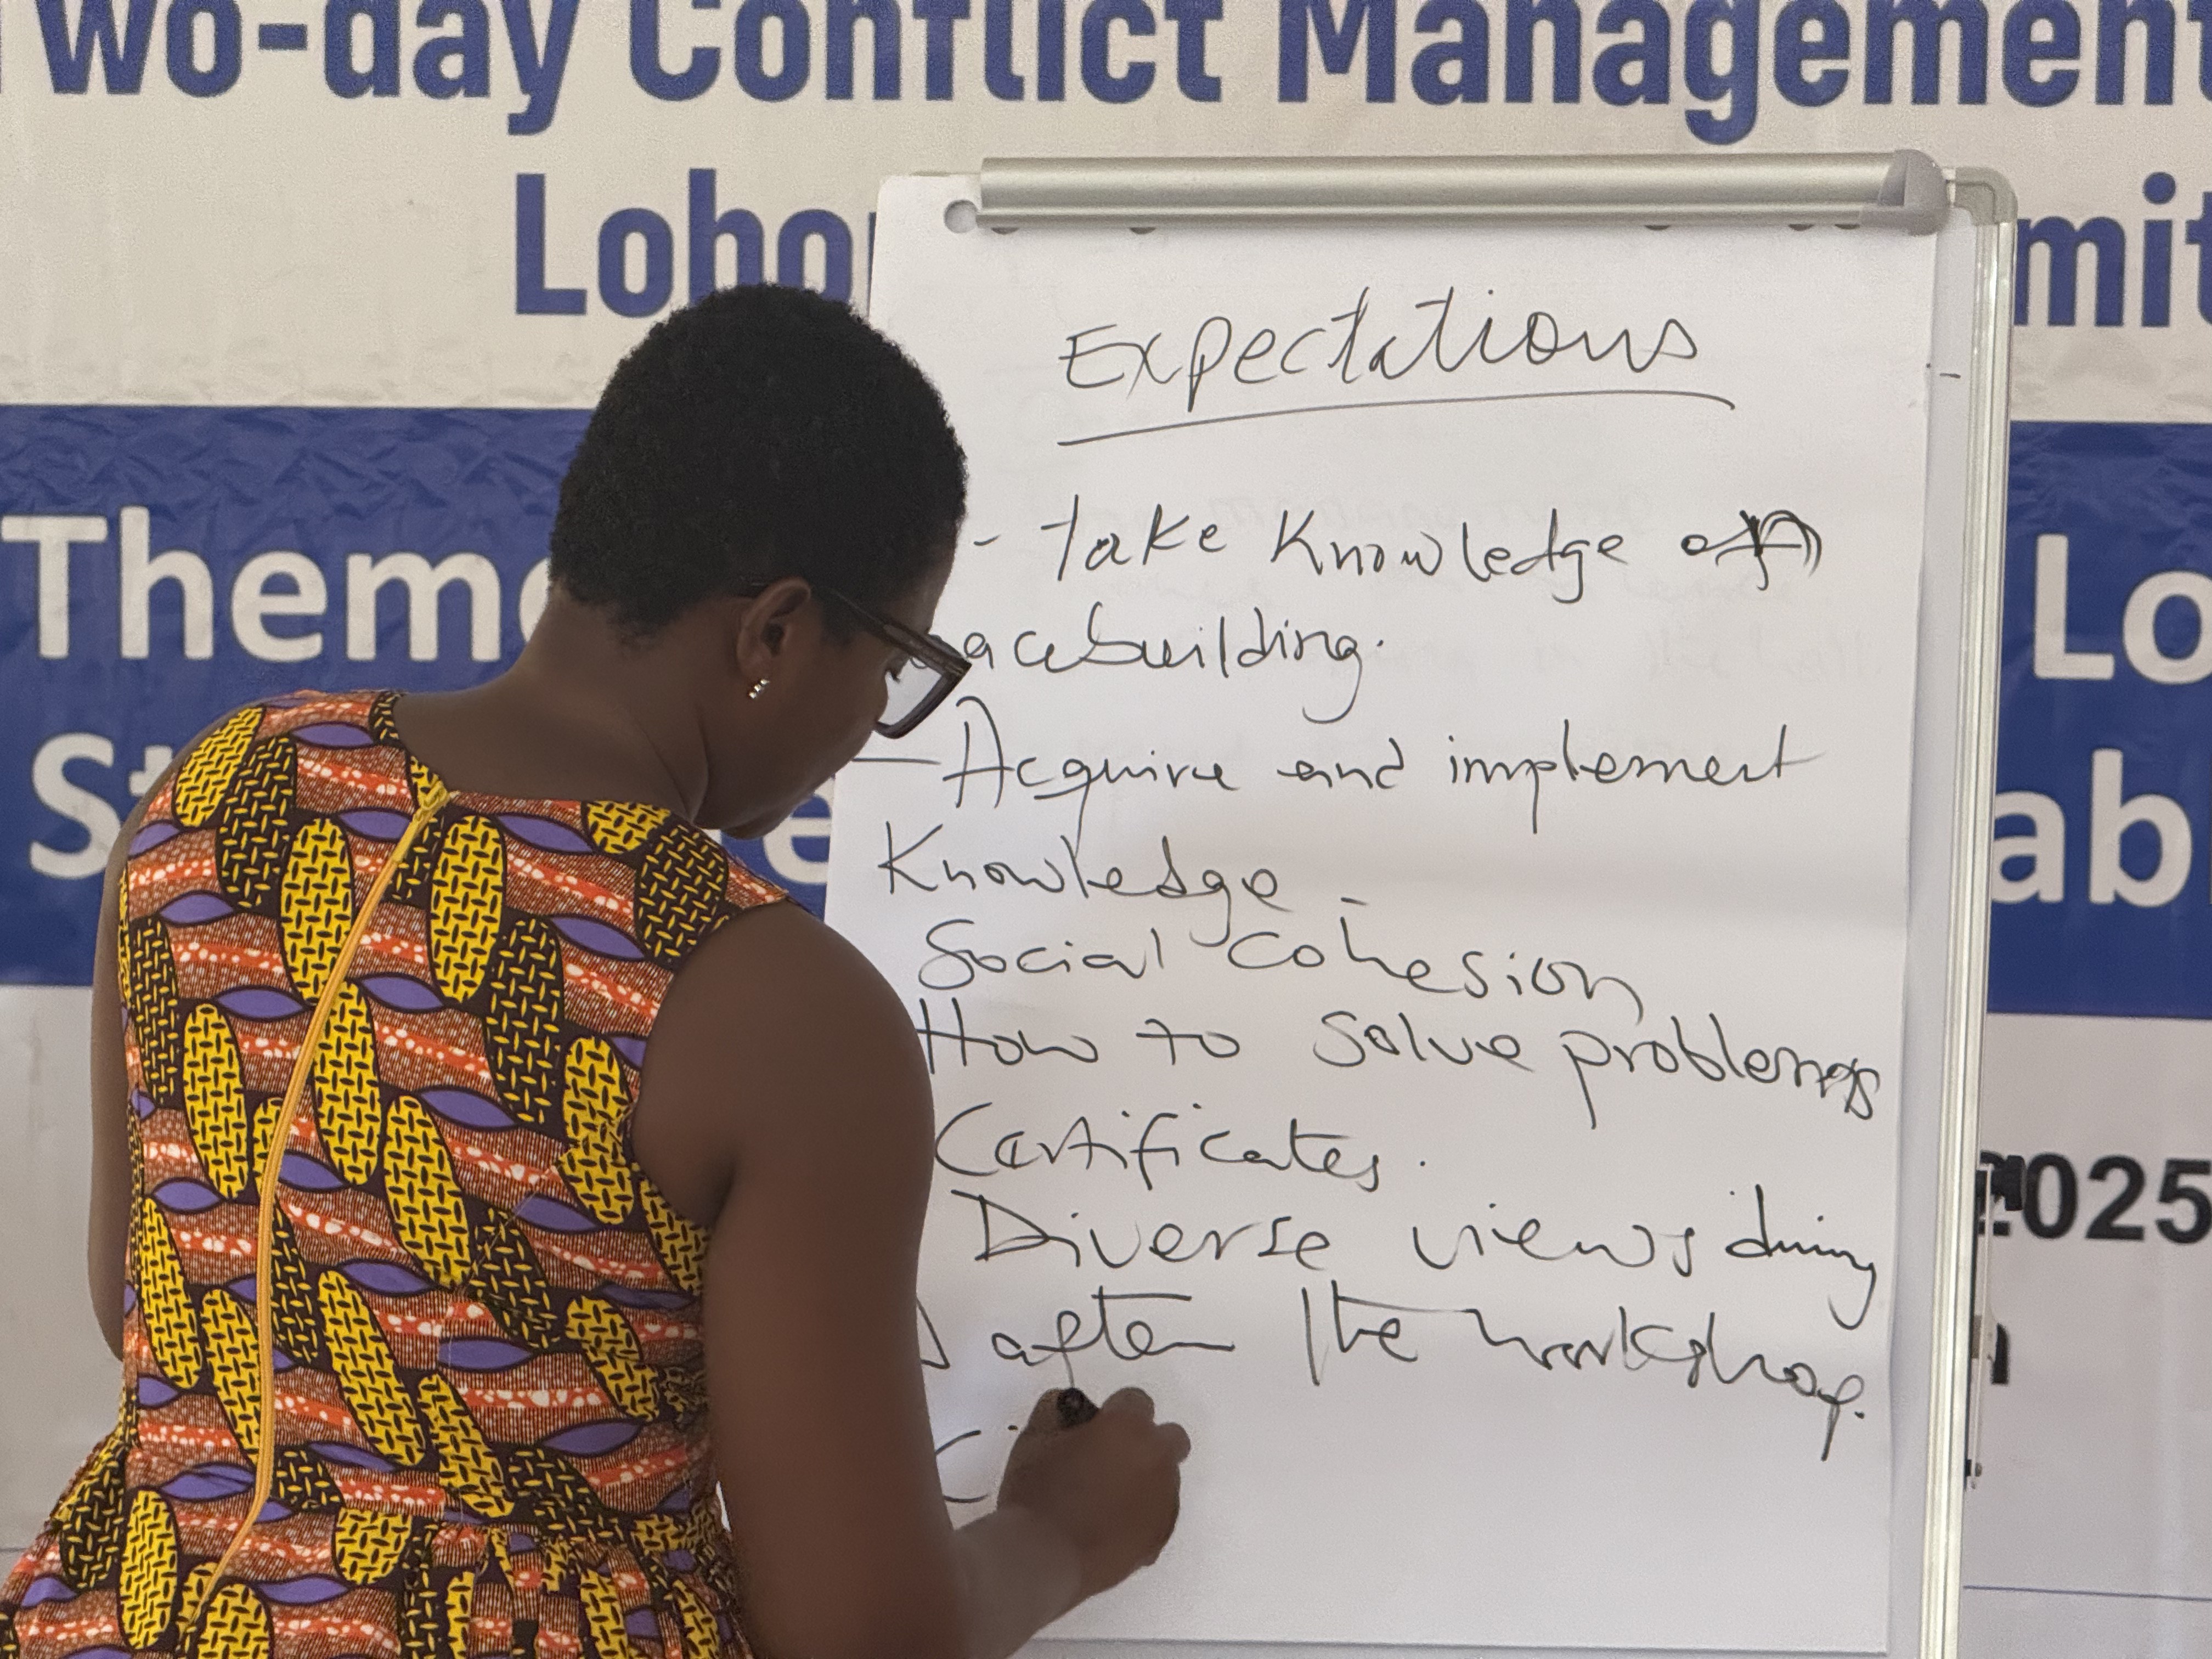 Two-day Conflict Management
Loho
mit
Theme
Lo
St
e
ab
2025
Expectations
- Take Knowledge on
acebuilding.
- Acquire and implement
Knowledge
Social Cohesion
How to Solve problems
Certificates.
Diverse views during
after the workshop.